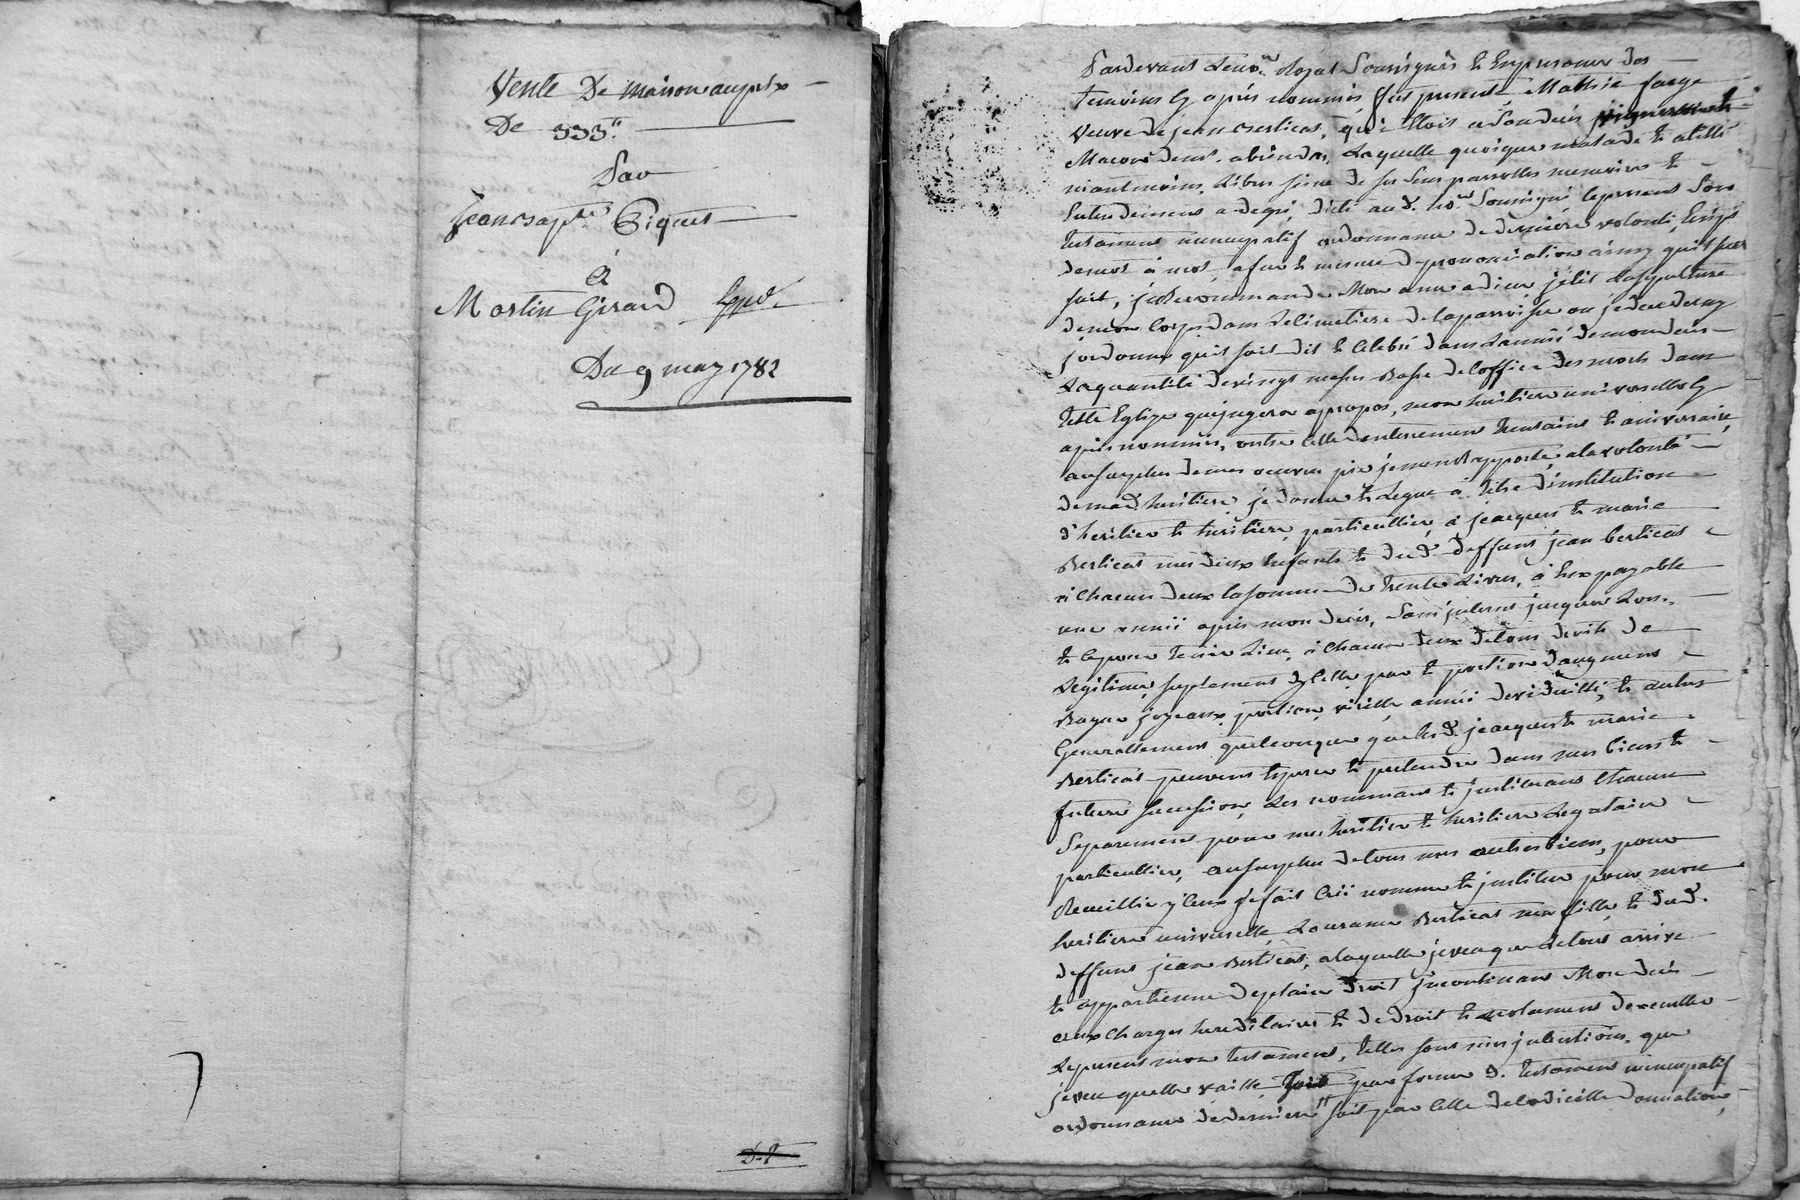 Vente De maison au prix
De 333ᵗᵗ
Par
Jean Bapᵗᵉ Piquet
à
Martin Girard
Du 9 may 1782
Pardevant le noʳᵉ Royal Soussignés Et En presence des
temoins Cy après nommés fut presente Mathie faege
veuve de jean Berticat, qu'Etoit à Son deces
Macon demᵗ laquelle quoique malade Et
neantmoins libre saine de ses sens parrolles memoire Et
Entendement a de gré, dicté aud. noʳᵉ Soussigné le present Son
testament nuncupatif ordonnance de derniere volonté, Ecrit
de mot à mot, a fur Et mesure de prononciation ainsy qui S'en
suit, je recommande Mon ame a dieu j'elis la sepulture
de mon Corps dans le Cimetiere de la parroisse ou je decederay
j'ordonne qu'il soit dit Et Celebré dans l'année de mon deces
la quantité de vingt messes Basse de l'office des morts dans
telle Eglize que jugera apropos, mon heritiere universelle Cy
après nommée, outre Celle d'enterrement trentaine Et aniversaire,
au surplus de mes oeuvres pie je m'en Rapporte, a la volonté
de mad. heritiere, je donne Et Legue à titre d'institution
d'heritier Et heritiere, particulliere, à jeacques Et marie
Berticat mes deux Enfants Et dud. deffunt jean Berticat
à Chacun deux la somme de trente Livres, à Eux payable
une année après mon deces, sans interest jusques Lors,
Et Ce pour tenir Lieu, à Chacun deux de tous droits de
Legitime, suplement d'yCelle part Et portion d'augment
Bague joyeaux portion virille année de viduitté, Et autres
Generallement quelconque que lesd. jeacques Et marie
Berticat peuvent Esperer Et pretendre dans mes biens Et
future succession, Les nommant Et instituant Chacun
Separement pour mes heritier Et heritiere Legataire
particullier, au surplus de tous mes autres biens, pour
Recuillir yCeux j'ay fait Créé nommé Et institué pour mon
heritiere universelle, Lourance Berticat ma fille Et dud.
deffunt jean Berticat, a laquelle je veu que le tout arrive
Et appartienne de plain droit jncontinant Mon deces
aux charges hereditaires Et de droit Et notament d'executter
le present mon testament, telles sont mes intentions, que
je veu quelle vaille, soit par forme de testament nuncupatif
ordonnance de derniere vᵗᵉ soit par Celle de Codicille donnation,